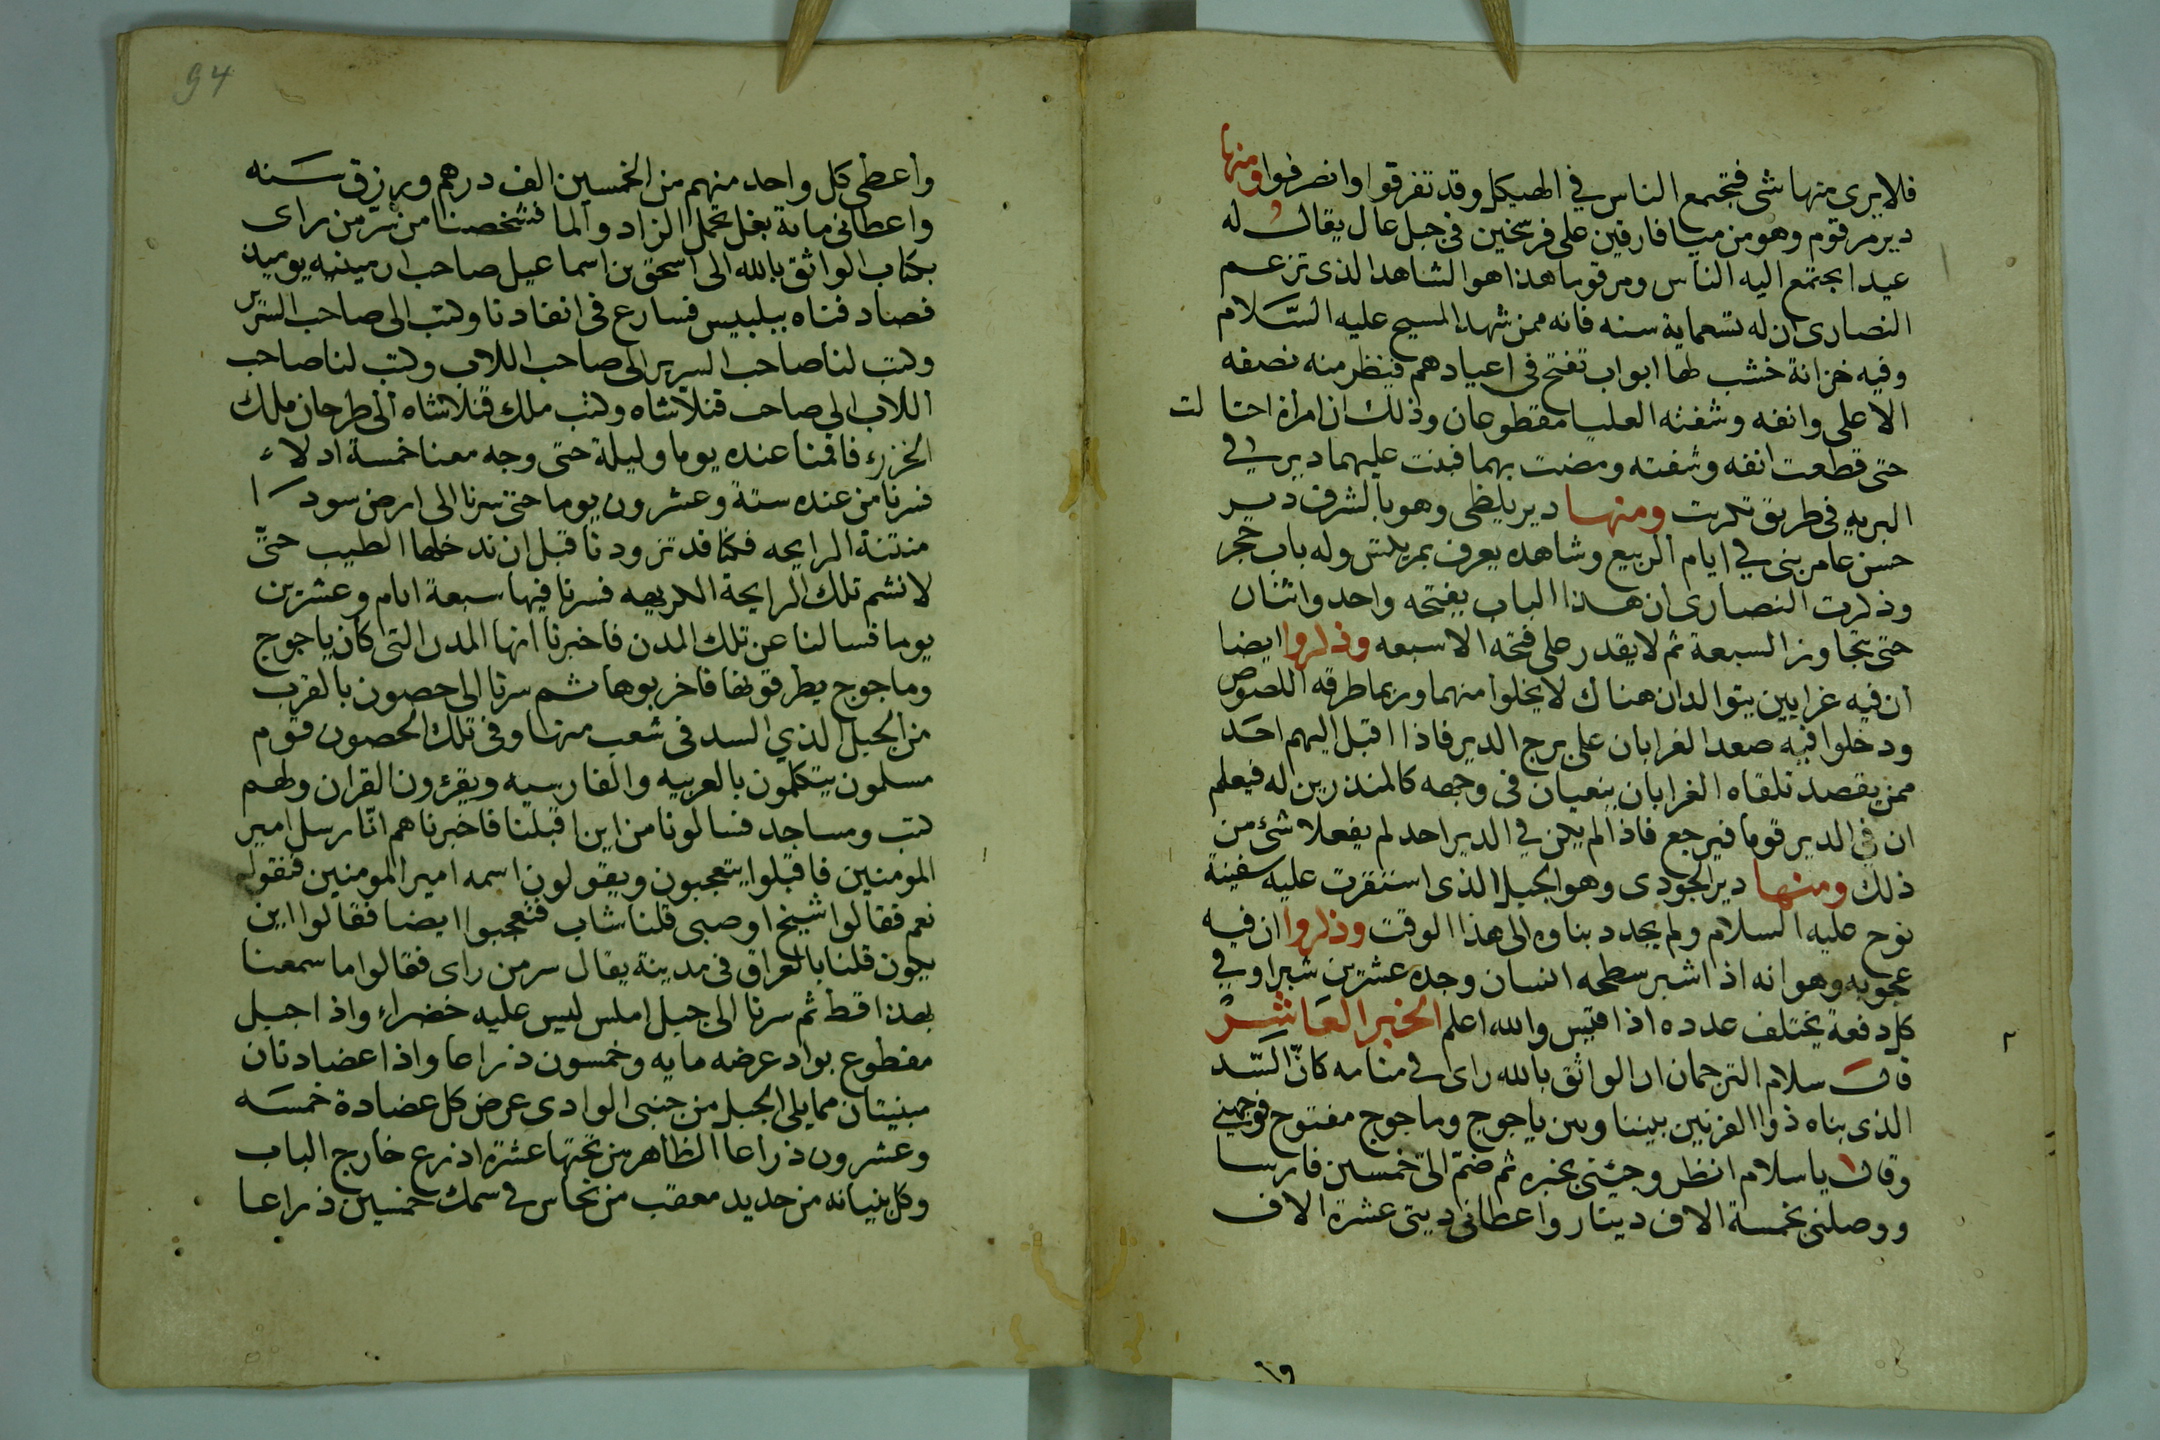 فلا يرى منها شى فتجتمع الناس في الهيكل وقد تفرقوا وانصرفوا ومنها
دير مرقوم وهو من ميافارقين على فرسخين فى جبل عال يقال له
عيدا يجتمع اليه الناس ومرقوما هذا هو الشاهد الذى تزعم
النصارى ان له تسعماية سنه فانه ممن شهد المسيح عليه السلام
وفيه خزانة خشب لها ابواب تفتح فى اعيادهم فينظر منه نصفه
الاعلى وانفه وشفته العليا مقطوعان وذلك ان امراة احتالت
حتى قطعت انفه وشفته ومضت بهما فبنت عليهما دير في
البريه فى طريق تكريت ومنها دير بلظى وهو بالشرف دير
حسن عامر بنى في ايام الربيع وشاهده يعرف بمريكتس وله باب حجر
وذكرت النصارى ان هذا الباب يفتحه واحد واثنان
حتى يتجاوز السبعة ثم لا يقدر على فتحه الا سبعه وذكروا ايضا
ان فيه غرابين يتوالدان هناك لا يخلوا منهما وربما طرقه اللصوص
ودخلوا فيه صعد الغرابان على برج الدير فاذا اقبل اليهم احد
ممن يقصد تلقاه الغرابان ينعبان فى وجهه كالمنذرين له فيعلم
ان في الدير قوما فيرجع فاذا لم يكن في الدير احد لم يفعلا شئ من
ذلك ومنها دير الجودى وهو الجبل الذى استقرت عليه سفينة
نوح عليه السلام ولم يجدد بناوه الى هذا الوقت وذكروا ان فيه
عجوبه وهو انه اذا شبر سطحه انسان وجده عشرين شبرا وفي
كل دفعة يختلف عدده اذا قيس والله اعلم الخبر العاشر
قال سلام الترجمان ان الواثق بالله راى في منامه كان السد
الذى بناه ذوا القرنين بيننا وبين ياجوج وماجوج مفتوح فوجهني
وقال يا سلام انظر وجئنى بخبره ثم ضم الى خمسين فارسا
ووصلنى بخمسة الاف دينار واعطانى ديتى عشرة الاف
94
واعطى كل واحد منهم من الخمسين الف درهم ورزق سنه
واعطانى ماية بغل تحمل الزاد والما فشخصنا من سر من راى
بكتاب الواثق بالله الى اسحق بن اسماعيل صاحب ارمينيه يوميذ
فصادفناه ببلبيس فسارع فى انفادنا وكتب الى صاحب السرير
وكتب لنا صاحب السرير الى صاحب اللاب وكتب لنا صاحب
اللاب الى صاحب قنلانشاه وكتب ملك قنلانشاه الى طرحان ملك
الخزر فاقمنا عنده يوما وليلة حتى وجه معنا خمسة ادلاء
فسرنا من عنده ستة وعشرون يوما حتى سرنا الى ارض سودا
منتنة الرايحه فكنا قد تزودنا قبل ان ندخلها الطيب حتى
لا نشم تلك الرايحة الكريهه فسرنا فيها سبعة ايام وعشرين
يوما فسالنا عن تلك المدن فاخبرنا انها المدن التى كان ياجوج
وماجوج يطرقونها فاخربوها ثم سرنا الى حصون بالقرب
من الجبل الذي السد فى شعب منها وفى تلك الحصون قوم
مسلمون يتكلمون بالعربيه والفارسيه ويقرءون القران ولهم
كتب ومساجد فسالونا من اين اقبلنا فاخبرناهم انا رسل امير
المومنين فاقبلوا يتعجبون ويقولون اسمه امير المومنين فنقول
نعم فقالوا شيخ او صبى قلنا شاب فتعجبوا ايضا فقالوا اين
يكون قلنا بالعراق فى مدينة يقال سر من راى فقالوا ما سمعنا
بهذا قط ثم سرنا الى جبل املس ليس عليه خضراء واذا جبل
مقطوع بواد عرضه مايه وخمسون ذراعا واذا عضادتان
مبنيتان مما يلى الجبل من جنبى الوادى عرض كل عضادة خمسه
وعشرون ذراعا الظاهر من تحتها عشرة اذرع خارج الباب
وكل بنيانه من حديد معقب من نحاس في سمك خمسين ذراعا